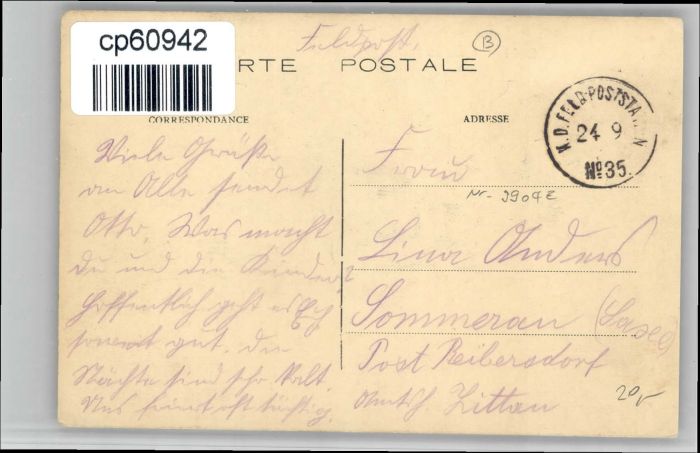 cp60942
Feldpost.
B
RTE POSTALE
CORRESPONDANCE
ADRESSE
K.D. FELD-POSTSTA N
24 9
No 35.
Viele Grüße
an Alle sendet
Otto. Was macht
Du und die Kinder?
Hoffentlich geht es Euch
soweit gut. Die
Nächte sind sehr kalt.
tüchtig.
Frau
Nr.
Lina Anders
Sommerau
Post Reibersdorf
Amtsh. Zittau
20,-